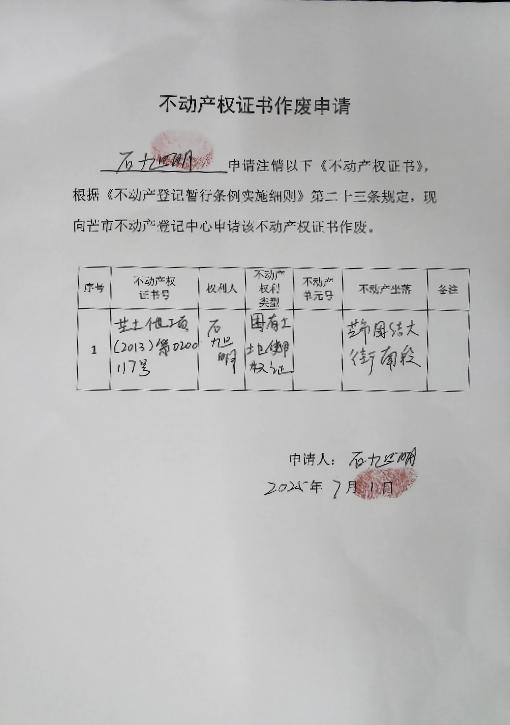 不动产权证书作废申请
石九 明 申请注销以下《不动产权证书》，
根据《不动产登记暂行条例实施细则》第二十三条规定，现
向芒市不动产登记中心申请该不动产权证书作废。
序号 不动产权证书号 权利人 不动产权利类型 不动产单元号 不动产坐落 备注
1 芒土他项(2013)第0200117号 石九 明 国有土地使用权证 芒市团结大街南段
申请人： 石九 明
2025年 7月 1日